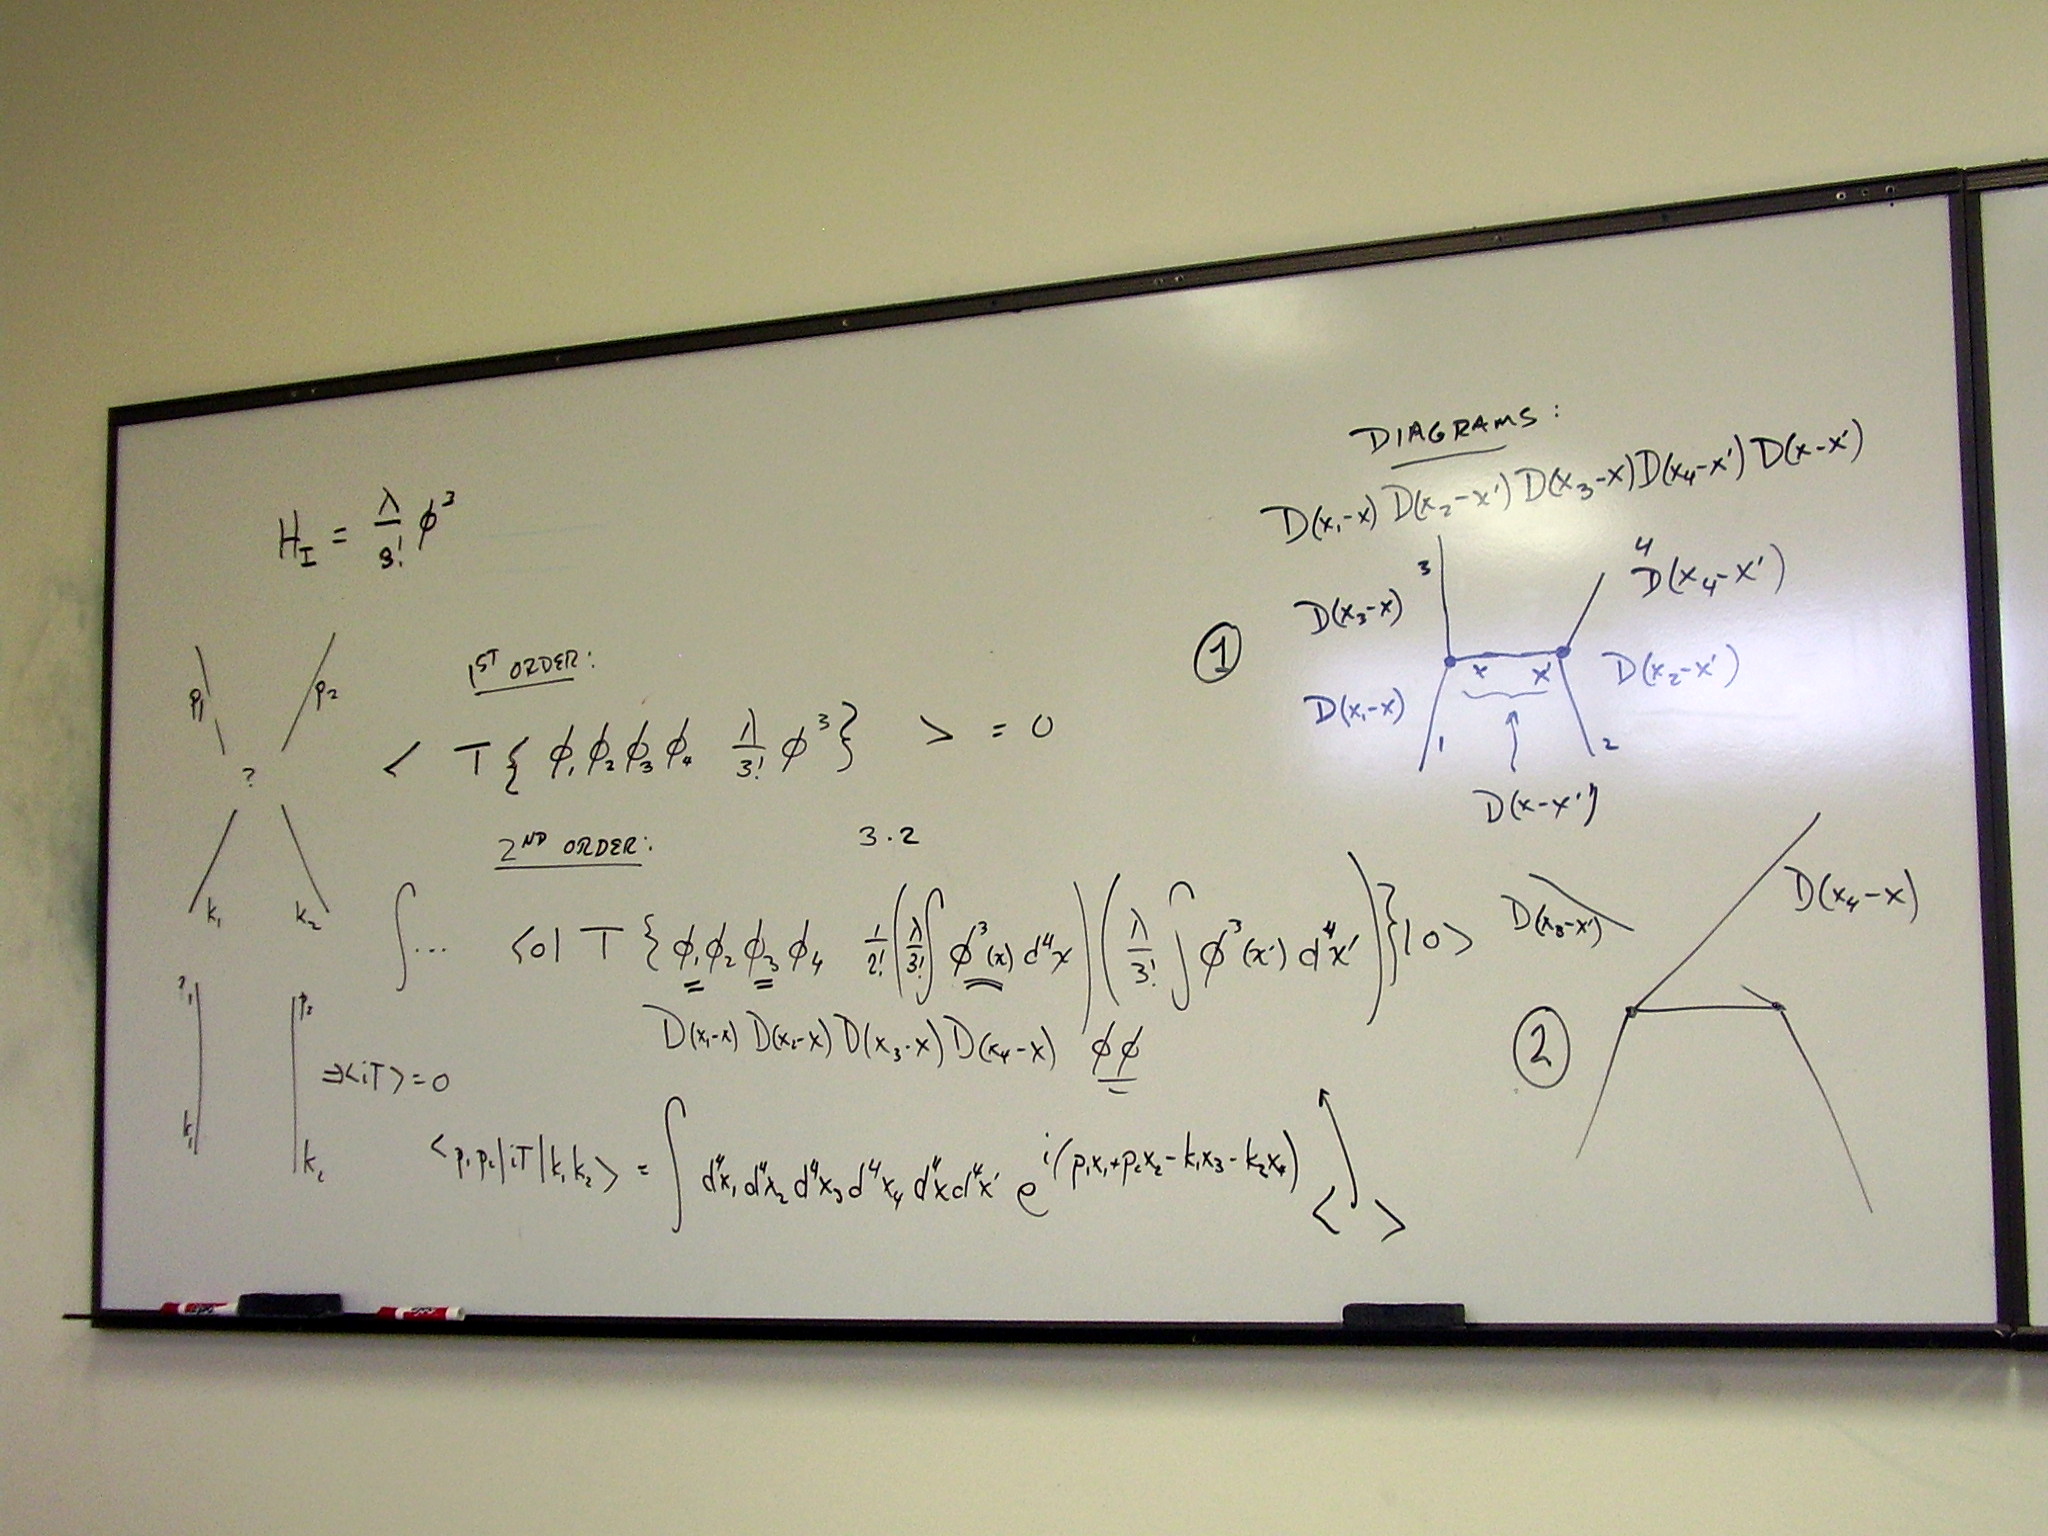 H_I = λ/3! φ³
p₁ p₂
?
k₁ k₂
1ST ORDER:
< T{ φ₁φ₂φ₃φ₄ λ/3! φ³} > = 0
2ND ORDER: 3·2
∫... <0| T { φ₁φ₂φ₃φ₄ 1/2! (λ/3! ∫ φ³(x) d⁴x) (λ/3! ∫ φ³(x') d⁴x')}|0>
D(x₁-x) D(x₂-x) D(x₃-x) D(x₄-x) φφ
p₂
k₁ k₂
⇒<iT>=0
<p₁p₂|iT|k₁k₂> = ∫ d⁴x₁ d⁴x₂ d⁴x₃ d⁴x₄ d⁴x d⁴x' e^{i(p₁x₁+p₂x₂-k₁x₃-k₂x₄)} < >
DIAGRAMS:
D(x₁-x) D(x₂-x') D(x₃-x) D(x₄-x') D(x-x')
1
3 4
D(x₃-x) D(x₄-x')
x x'
D(x₁-x) D(x₂-x')
1 2
D(x-x')
D(x₃-x') D(x₄-x)
2